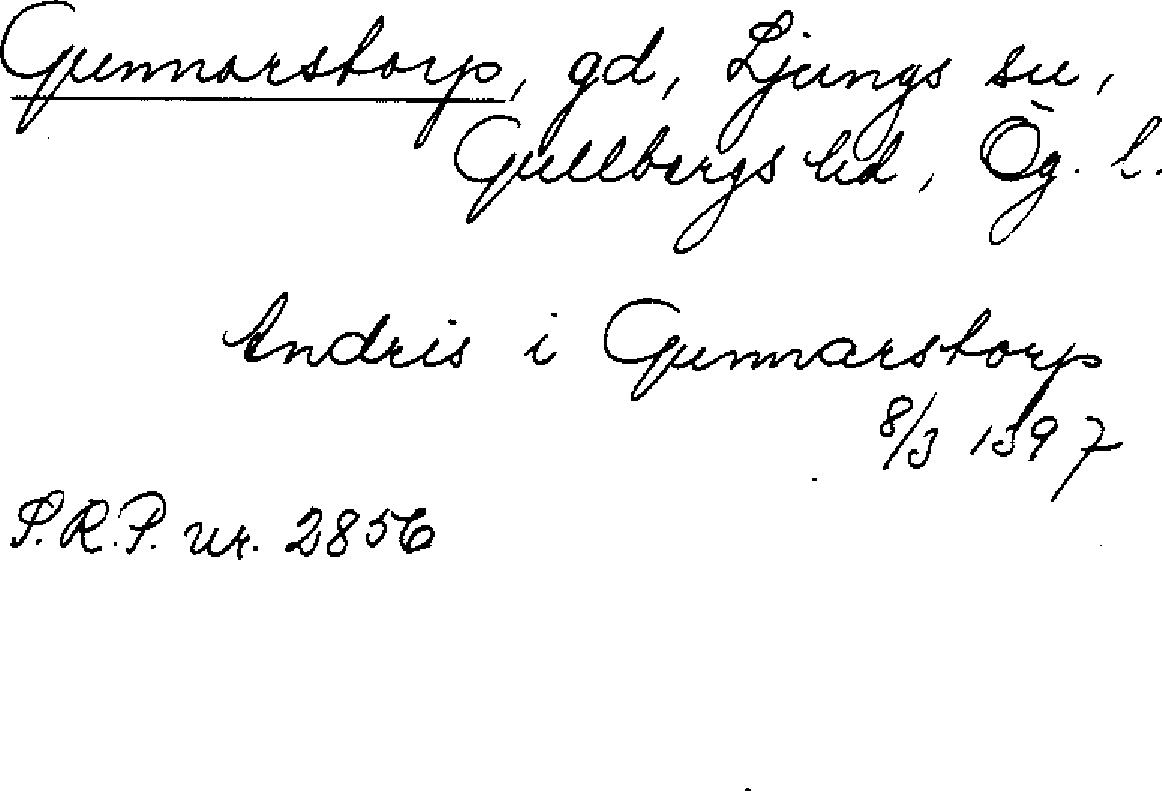 Gunnarstorp, gd, Ljungs sn,
Gullbergs hd, Ög. l.
Andris i Gunnarstorp
8/3 1397
S.R.P. nr. 2856